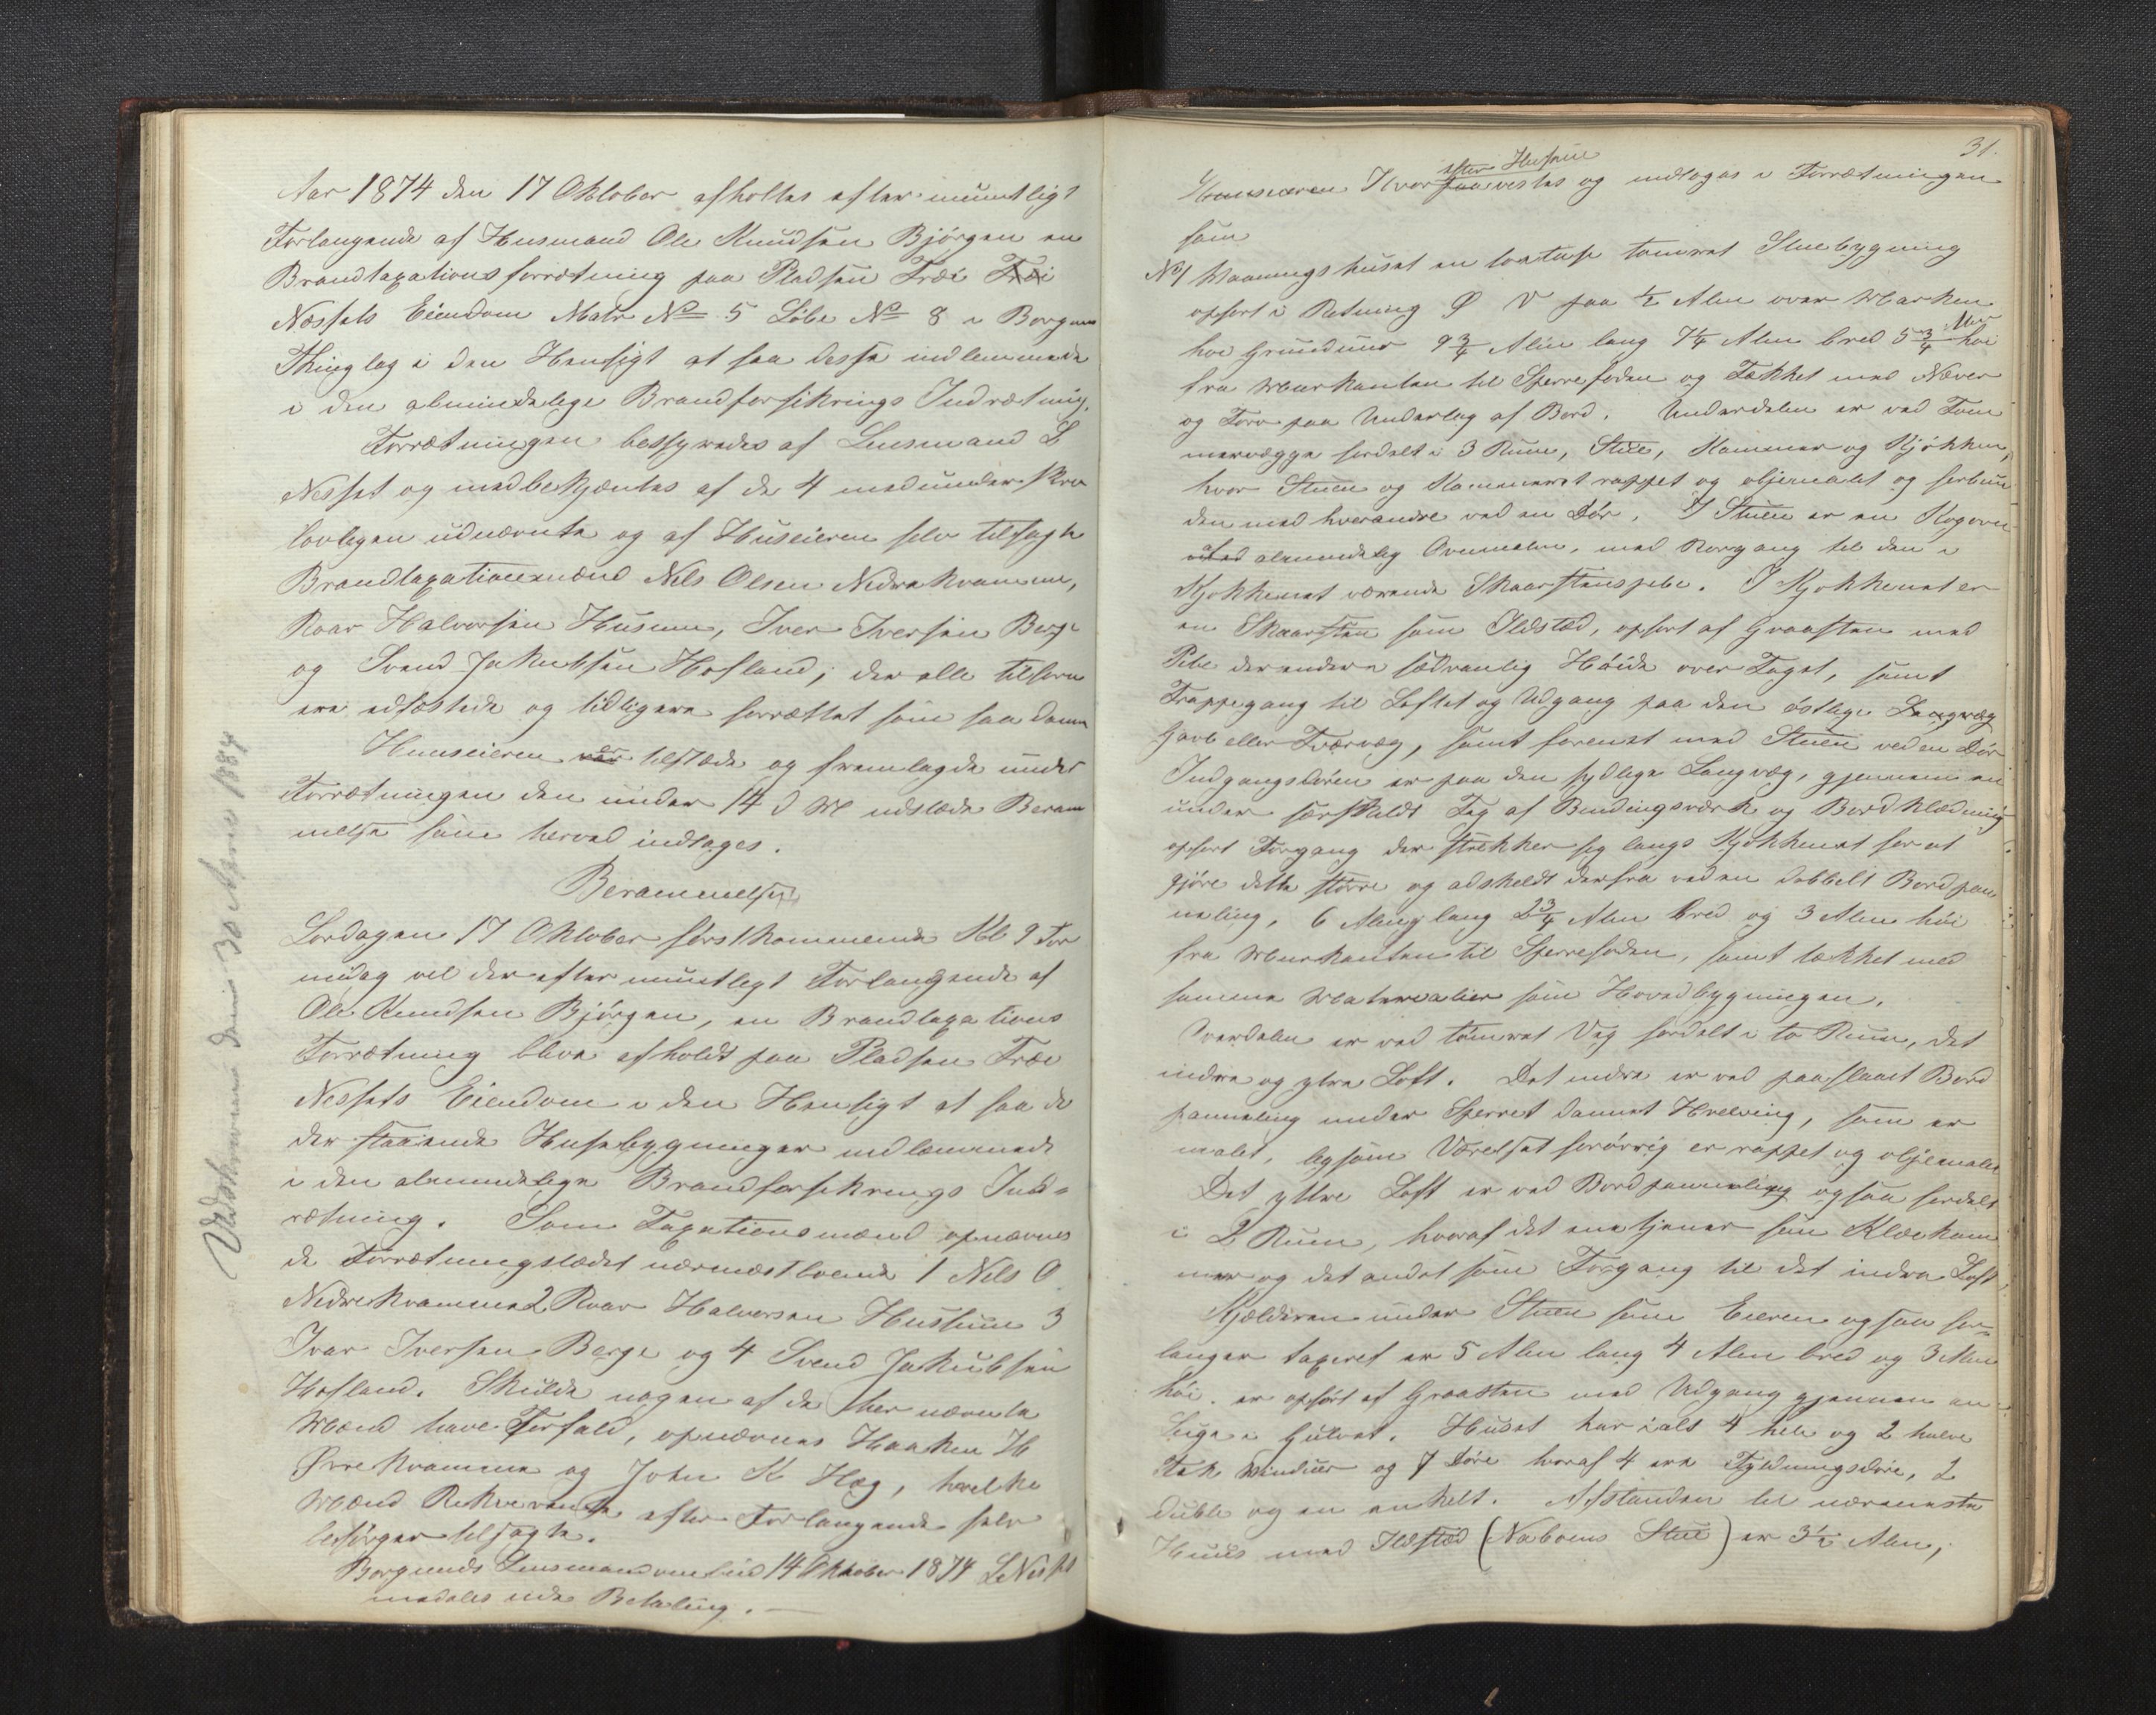 Aar 1874 den 17 Oktober afholtes efter mundtligt
Forlangende af Husmand Ole Knudsen Bjørgen en
Brandtaxationsforrætning paa Pladsen Træi Træi
Nessets Eiendom Matr No 5 Løbe No 8 i Borgund
Thinglag i den Hensigt at faa disse indlemmede
i den almindelige Brandforsikrings Indrætning.
Forrætningen bestyredes af Lensmand L
Nesset og medbekjentes af de 4 medunderskrev
lovligen udnævnte og af Huseieren selv tilsagte
Brandtaxationsmænd Nils Olsen Nedrekvamme,
Roar Halvorsen Husum, Iver Iversen Berge
og Svend Jakobsen Hofland; der alle tilforn
ere edfæstede og tidligere forrættet som saadanne
Huuseieren var tilstæde og fremlagde under
Forrætningen den under 14 d M udstæde Beram
melse som herved indtages.
Berammelse
Lørdagen 17 Oktober førstkommende Kl 9 For
midag vil der efter mundtligt Forlangende af
Ole Knudsen Bjørgen, en Brandtaxations
Forrætning blive afholdt paa Pladsen Træe
Nessets Eiendom i den Hensigt at faa de
der staaende Husebygninger indlemmede
i den almindelige Brandforsikrings Ind-
rætning. Som Taxationsmænd opnævnes
de Forrætningstædet nærmestboende 1 Nils O
Nedrekvamme 2 Roar Halvorsen Hussum 3
Ivar Iversen Berge og 4 Svend Jakobsen
Hofland. Skulde nogen af de her nævnte
Mænd have Forfald, opnævnes Haaken H
Øvrekvamme og John K Hæg, hvilke
Mænd Rekvirenten efter Forlangende selv
besørger tilsagte.
Borgunds Lensmandsombud 14 Oktober 1874 L Nesset
meddeles uden Betaling.
Udskreven den 30 1884
31.
efter Husene
Huuseieren Hvor paavistes og medtoges i Forrætningen
som
No 1 Vaaningshuset en toetasje tømret Stuebygning
opført i Retning Ø V paa ½ Alen over Marken
høi Grundmur 9¾ Alen lang 7¼ Alen bred 5¾ Alen høi
fra Murkanten til Sperrefoden og Tækket med Næver
og Torv paa Underlag af Bord. Underdelen er ved Tøm
mervægge fordelt i 3 Rum, Stue, Kammer og Kjøkken,
hvor Stuen og Kammeret rappet og oljemalet og forbun
den med hverandre ved en Dør. I Stuen er en Kogovn
ved almindelig Ovnmalm, med Rørgang til den i
Kjøkkenet værende Skaarstenspibe. I Kjøkkenet er
en Skaarsten som Ildsted, opført af Graasten med
Pibe derunder sædvanlig Høide over Taget, samt
Trappegang til Loftet og Udgang paa den østlige Langvæg
Gavl eller Tværvæg, samt forenet med Stuen ved en Dør
Indgangsdøren er paa den sydlige Langvæg, gjennem en
under særskildt Tag af Bindingsværk og Bordklædning
opført Forgang der strækker sig langs Kjøkkenet for at
gjøre dette større og adskeldt derfra ved en dobbelt Bordpan
neling, 6 Alen lang 2¾ Alen bred og 3 Alen høi
fra Murkanten til Sperrefoden, samt tækket med
samme Materialier som Hovedbygningen.
Overdelen er ved tømret Væg fordelt i to Rum, det
indre og ytre Loft. Det indre er ved paaslaaet Bord
panneling under Sperret dannet Hvelving, som er
malet, ligsom Værelset forøvrig er rappet og oljemalet
Det yttre Loft er ved Bordpanneling ogsaa fordelt
i 2 Rum, hvoraf det ene tjener som Klækam
mer og det andet som Forgang til det indre Loft.
Kjælderen under Stuen som Eieren ogsaa for-
langer taxeret er 5 Alen lang 4 Alen bred og 3 Alen
høi. er opført af Graasten med Udgang gjennem en
Luge i Gulvet. Huset har ialt 4 hele og 2 halve
Fak Vinduer og 7 Døre hvoraf 4 ere Fyldningsdøre, 2
duble og en enkelt. Afstanden til nærmeste
Huus med Ildsted (Naboens Stue) er 3½ Alen,